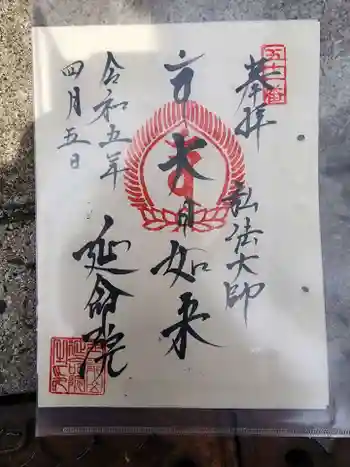 奉拝
弘法大師
大日如来
延命院
令和五年
四月五日